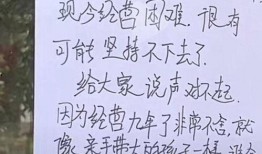 现今经营困难.很有
可能坚持不下去了.
给大家说声对不起.
因为经营九年了非常不舍,就
像亲手带大的孩子一样